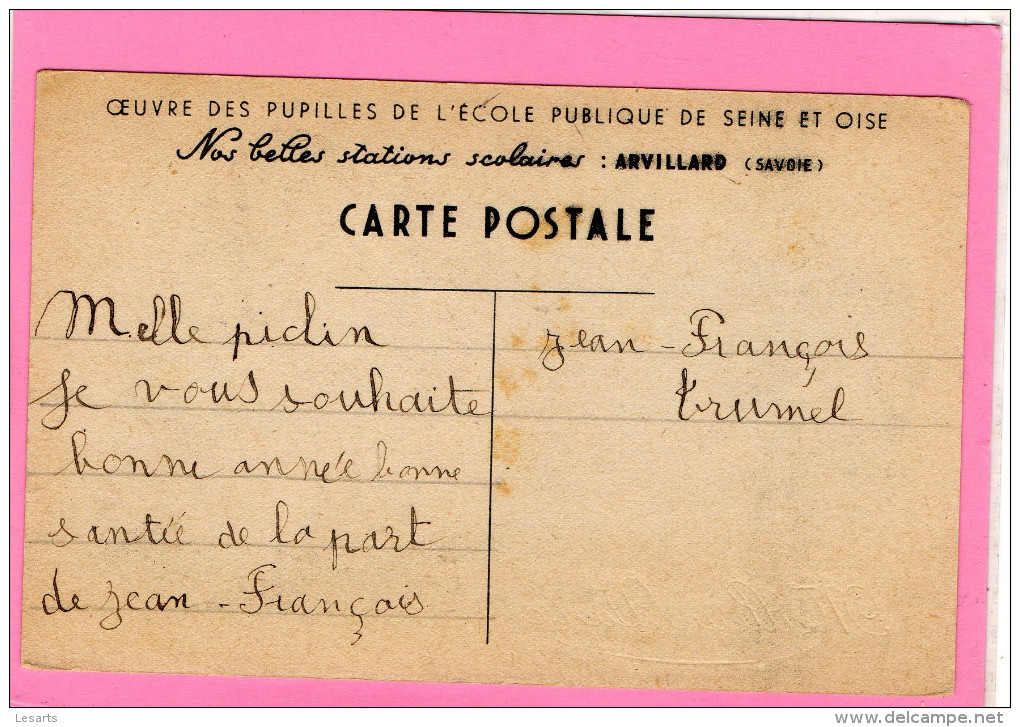 ŒUVRE DES PUPILLES DE L'ÉCOLE PUBLIQUE DE SEINE ET OISE
Nos belles stations scolaires : ARVILLARD (SAVOIE)
CARTE POSTALE
Melle pidin
je vous souhaite
bonne année bonne
santée de la part
de jean-François
jean-François
trumel
Lesarts
delcampe.net